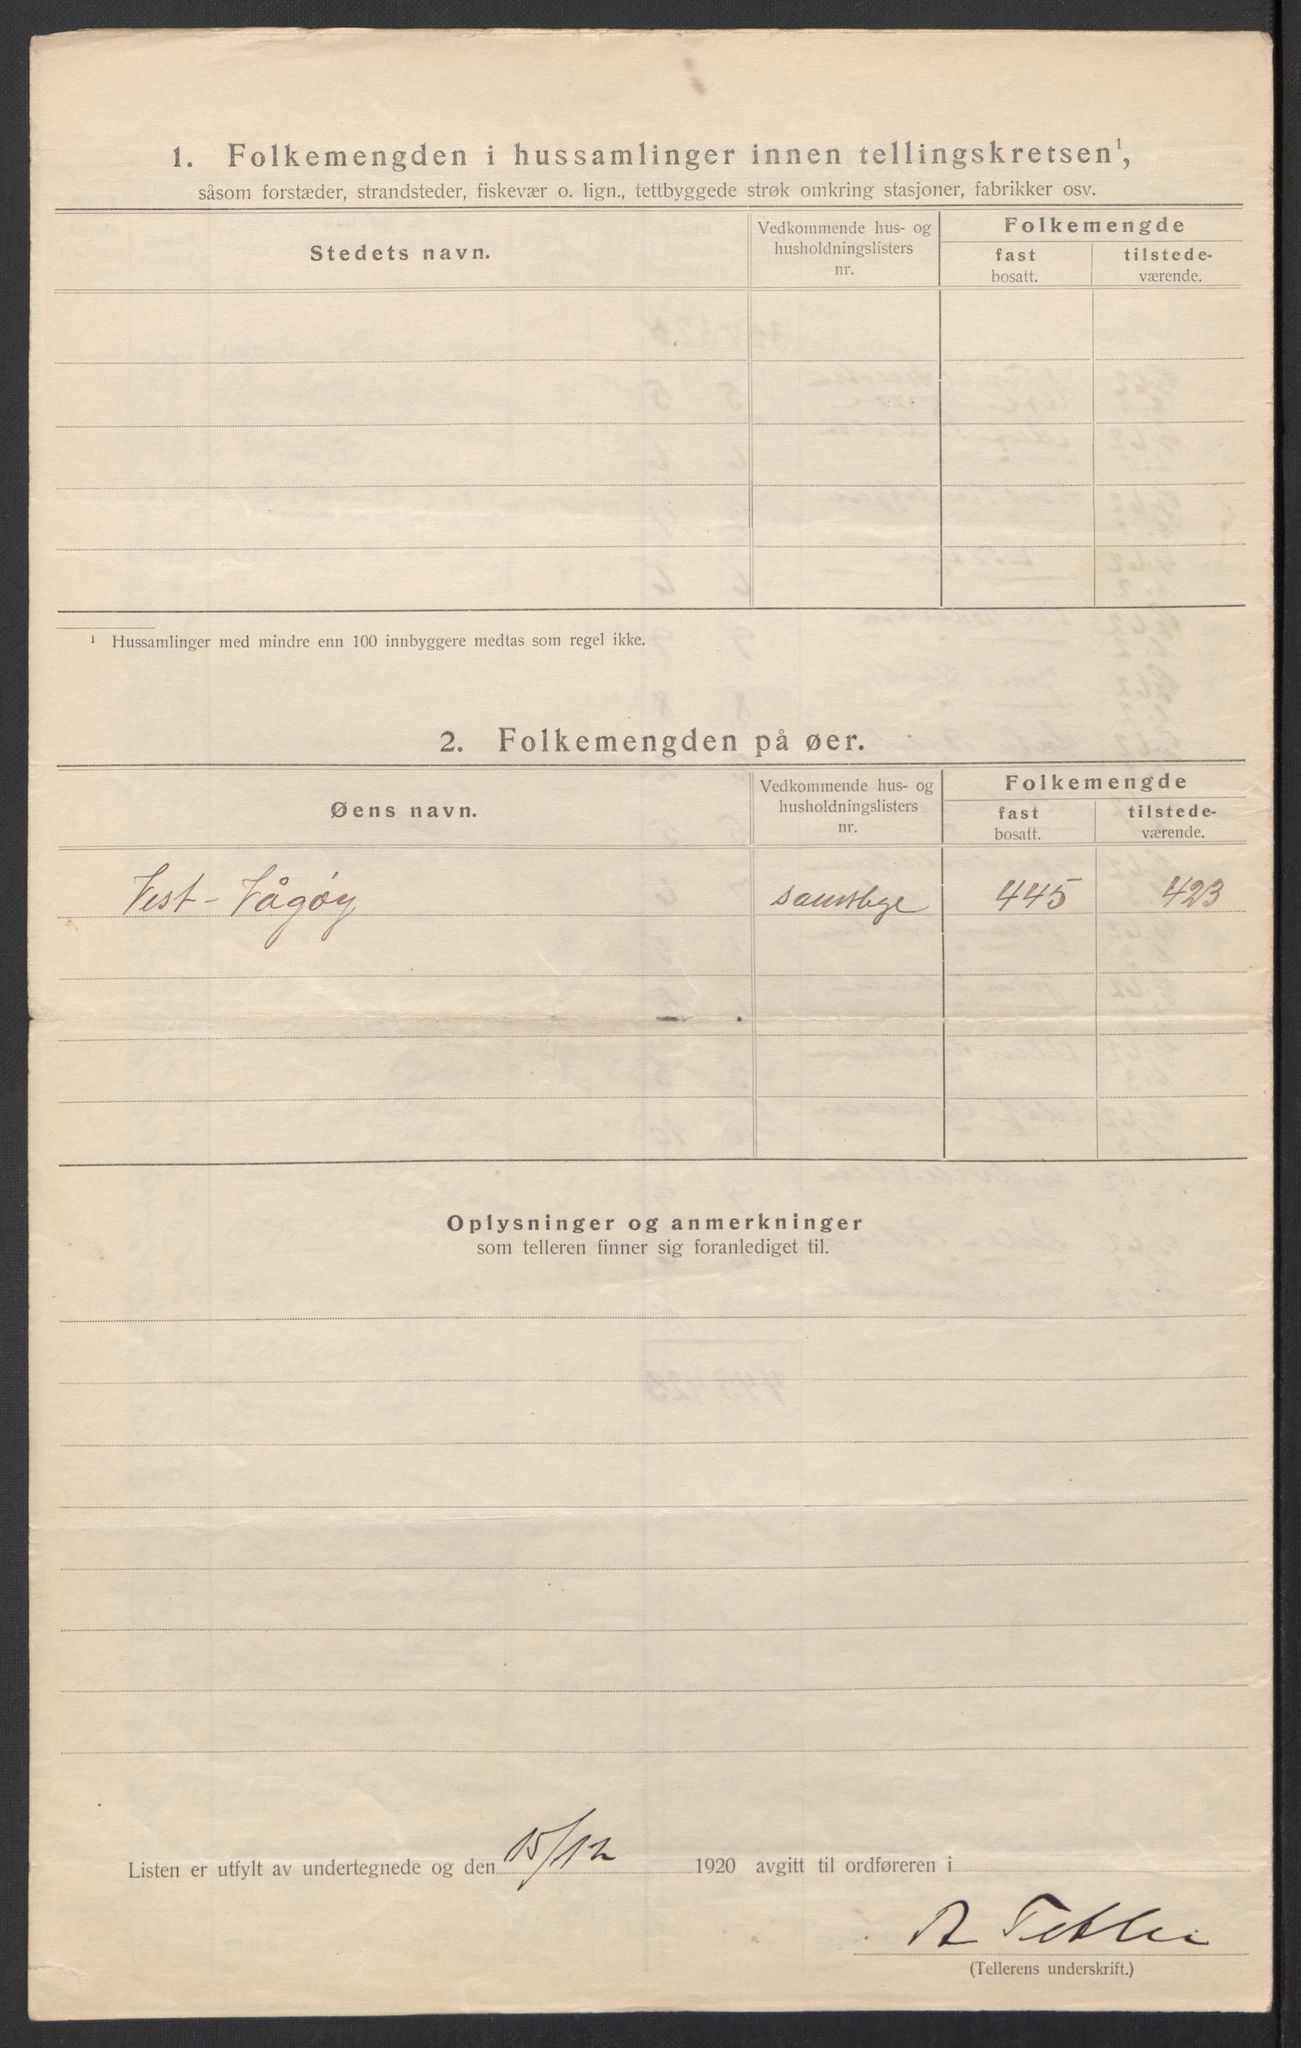 1. Folkemengden i hussamlinger innen tellingskretsen¹,
såsom forstæder, strandsteder, fiskevær o. lign., tettbyggede strøk omkring stasjoner, fabrikker osv.
Stedets navn.
Vedkommende hus- og
husholdningslisters
nr.
Folkemengde
fast
bosatt.
tilstede-
værende.
¹ Hussamlinger med mindre enn 100 innbyggere medtas som regel ikke.
2. Folkemengden på øer.
Øens navn.
Vedkommende hus- og
husholdningslisters
nr.
Folkemengde
fast
bosatt.
tilstede-
værende.
Vest-Vågøy samtlige 445 423
Oplysninger og anmerkninger
som telleren finner sig foranlediget til.
Listen er utfylt av undertegnede og den 15/12 1920 avgitt til ordføreren i
(Tellerens underskrift.)